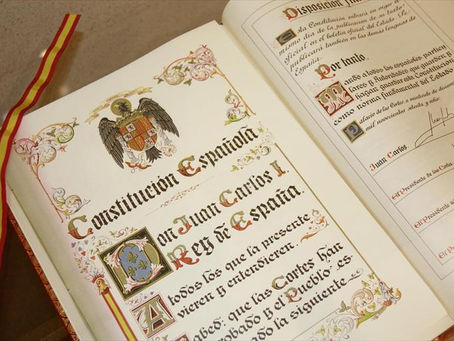 Constitución Española
Don Juan Carlos I,
Rey de España.
A todos los que la presente
vieren y entendieren.
Sabed: que las Cortes han
probado y el Pueblo es
ado la siguiente
Disposición
Esta Constitución entrará en vigor el
mismo día de la publicación de su texto
oficial en el boletín oficial del Estado. Se
publicará también en las demás lenguas de
España.
Por tanto,
Mando a todos los españoles particu
lares y autoridades que guarden y
hagan guardar esta Constitución
como norma fundamental del Estado
Palacio de las Cortes, a
mil novecientos setenta y ocho
Juan Carlos
El Presidente de las Cortes
El Presidente
El Presidente